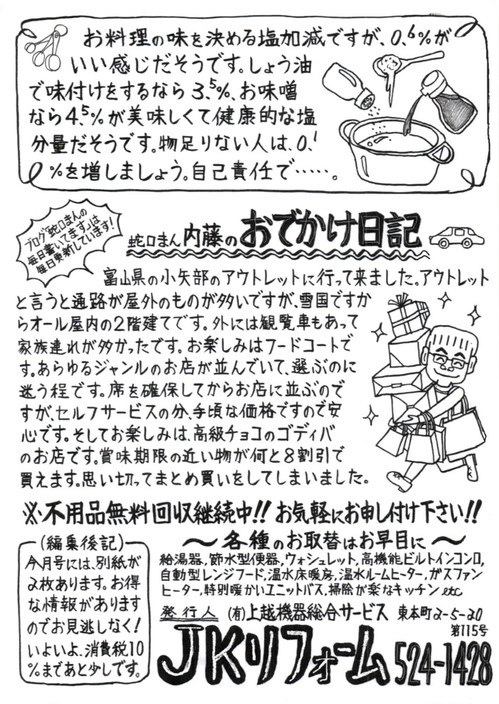 お料理の味を決める塩加減ですが、0.6%が
いい感じだそうです。しょう油
で味付けをするなら3.5%、お味噌
なら4.5%が美味しくて健康的な塩
分量だそうです。物足りない人は、0.1
%を増しましょう。自己責任で……。
ブログ「蛇口まんの
毎日書いてます」は
毎日更新しています!
蛇口まん内藤のおでかけ日記
富山県の小矢部のアウトレットに行って来ました。アウトレット
と言うと通路が屋外のものが多いですが、雪国ですか
らオール屋内の2階建てです。外には観覧車もあって
家族連れが多かったです。お楽しみはフードコートで
す。あらゆるジャンルのお店が並んでいて、選ぶのに
迷う程です。席を確保してからお店に並ぶので
すが、セルフサービスの分、手頃な価格ですので安
心です。そしてお楽しみは、高級チョコのゴディバ
のお店です。賞味期限の近い物が何と8割引で
買えます。思い切ってまとめ買いをしてしまいました。
※不用品無料回収継続中!! お気軽にお申し付け下さい!!
(編集後記)
今月号には、別紙が
2枚あります。お得
な情報があります
のでお見逃しなく!
いよいよ、消費税10
%まであと少しです。
〜各種のお取替はお早目に〜
給湯器,節水型便器,ウォシュレット,高機能ビルトインコンロ,
自動型レンジフード,温水床暖房,温水ルームヒーター,ガスファン
ヒーター,特別暖かいユニットバス,掃除が楽なキッチン etc
発行人 (有)上越機器総合サービス 東本町2-5-20
第115号
JKリフォーム 524-1428